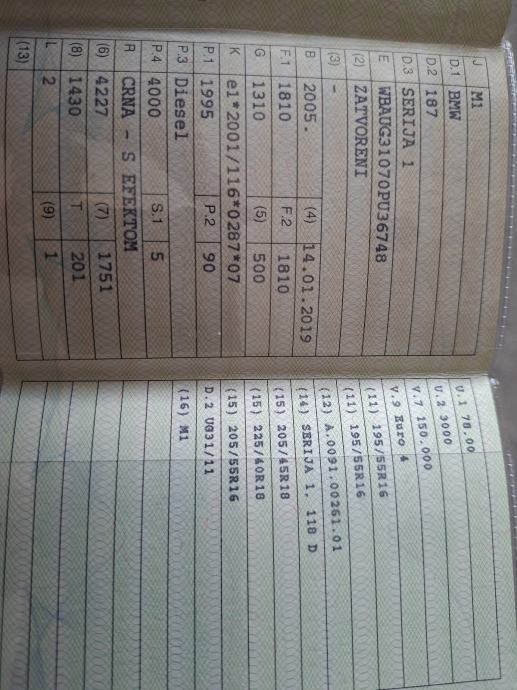 J M1
D.1 BMW
D.2 187
D.3 SERIJA 1
E WBAUG31070PU36748
(2) ZATVORENI
(3) -
B 2005. (4) 14.01.2019
F.1 1810 F.2 1810
G 1310 (5) 500
K e1*2001/116*0287*07
P.1 1995 P.2 90
P.3 Diesel
P.4 4000 S.1 5
R CRNA - S EFEKTOM
(6) 4227 (7) 1751
(8) 1430 T 201
L 2 (9) 1
(13)
U.1 78.00
U.2 3000
V.7 150.000
V.9 Euro 4
(11) 195/55R16
(11) 195/55R16
(12) A.0091.00261.01
(14) SERIJA 1. 118 D
(15) 205/45R18
(15) 225/40R18
(15) 205/55R16
D.2 UG31/11
(16) M1